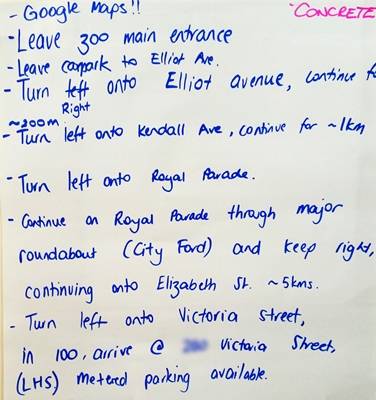 "CONCRETE
- Google Maps!!
- Leave 300 main entrance
- Leave carpark to Elliot Ave.
- Turn left onto Elliot avenue, continue f
Right
~200m.
- Turn left onto Kendall Ave, continue for ~1km
- Turn left onto Royal Parade.
- Continue on Royal Parade through major
roundabout (City Ford) and keep right,
continuing onto Elizabeth St. ~5kms.
- Turn left onto Victoria street,
in 100, arrive @ Victoria Street,
(LHS) metered parking available.